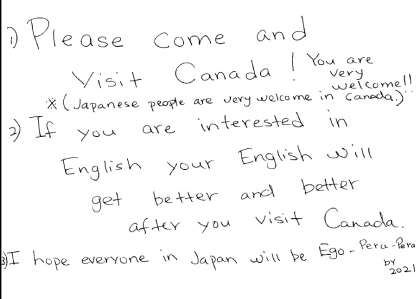 1) Please come and
Visit Canada! You are
very
welcome!!
*(Japanese people are very welcome in Canada.)
2) If you are interested in
English your English will
get better and better
after you visit Canada.
3) I hope everyone in Japan will be Ego-Peru-Pera
by
2021